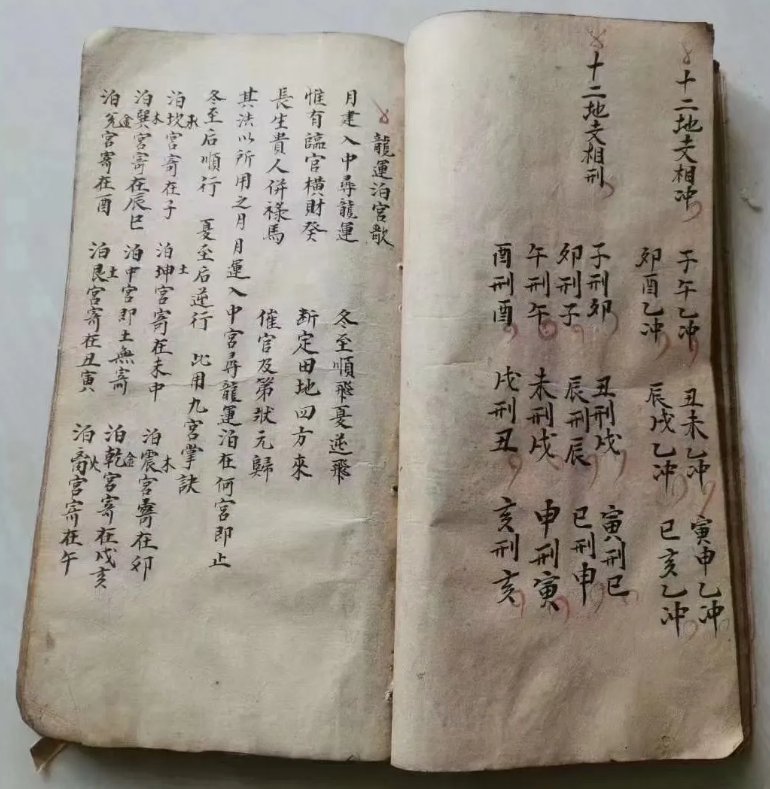 十二地支相冲
子午乙冲 丑未乙冲 寅申乙冲
卯酉乙冲 辰戌乙冲 巳亥乙冲
十二地支相刑
子刑卯 丑刑戌 寅刑巳
卯刑子 辰刑辰 巳刑申
午刑午 未刑戌 申刑寅
酉刑酉 戌刑丑 亥刑亥
龍運泊宮歌
月建入中尋龍運 冬至順飛夏逆飛
惟有臨官橫財癸 断定田地四方來
長生貴人併祿馬 催官及第狀元歸
其法以所用之月月運入中宮尋龍運泊在何宮即止
冬至后順行 夏至后逆行 此用九宮掌訣
泊坎水宮寄在子 泊坤土宮寄在未中 泊震木宮寄在卯
泊巽木宮寄在辰巳 泊中宮即土無寄 泊乾金宮寄在戌亥
泊兌金宮寄在酉 泊艮土宮寄在丑寅 泊离火宮寄在午